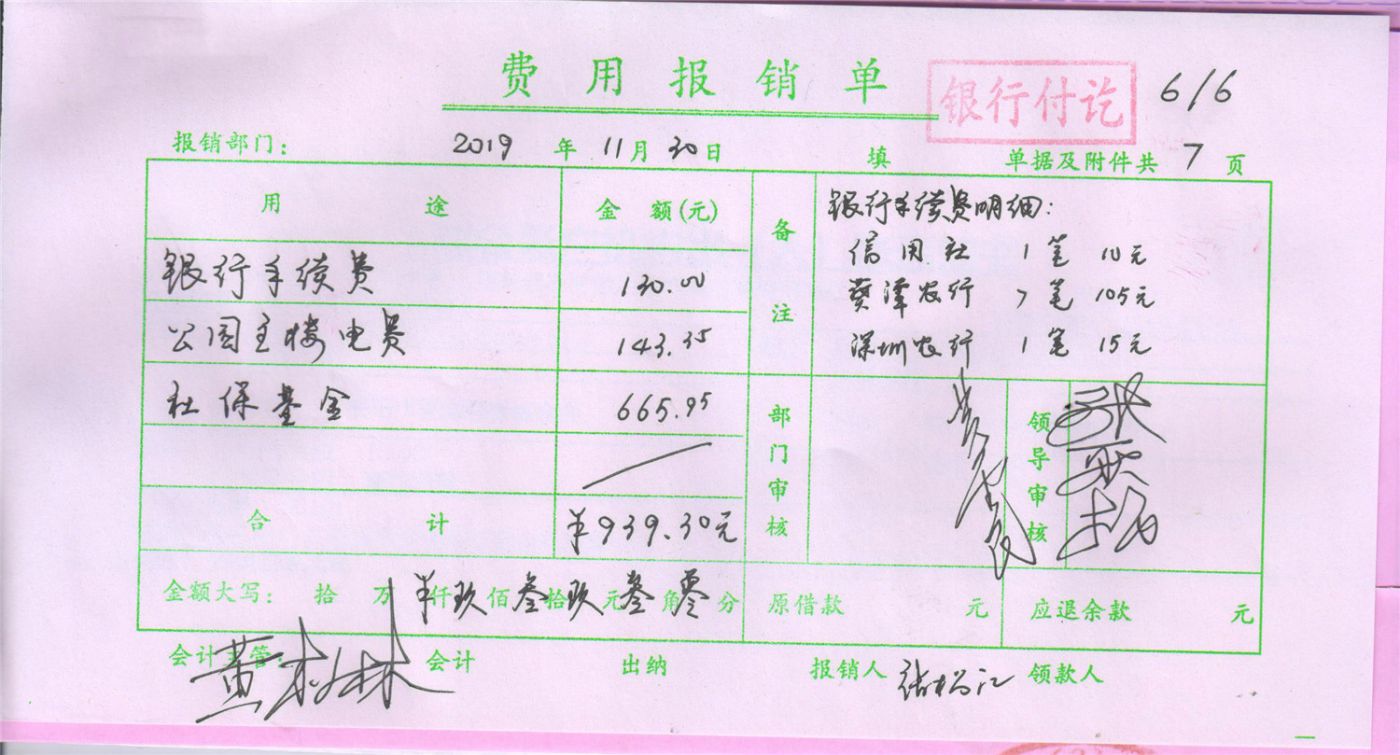 费用报销单 银行付讫 6/6
报销部门: 2019 年 11 月 30 日 填 单据及附件共 7 页
用途 金额(元) 备注 银行手续费明细:
信用社 1笔 10元
银行手续费 130.00 葵潭农行 7笔 105元
公园主楼电费 143.35 深圳农行 1笔 15元
社保基金 665.95 部门审核 领导审核
合计 ¥939.30元
金额大写: 拾 万 仟 ¥玖 佰 叁 拾 玖 元 叁 角 零 分 原借款 元 应退余款 元
会计主管 黄 林 会计 出纳 报销人 领款人